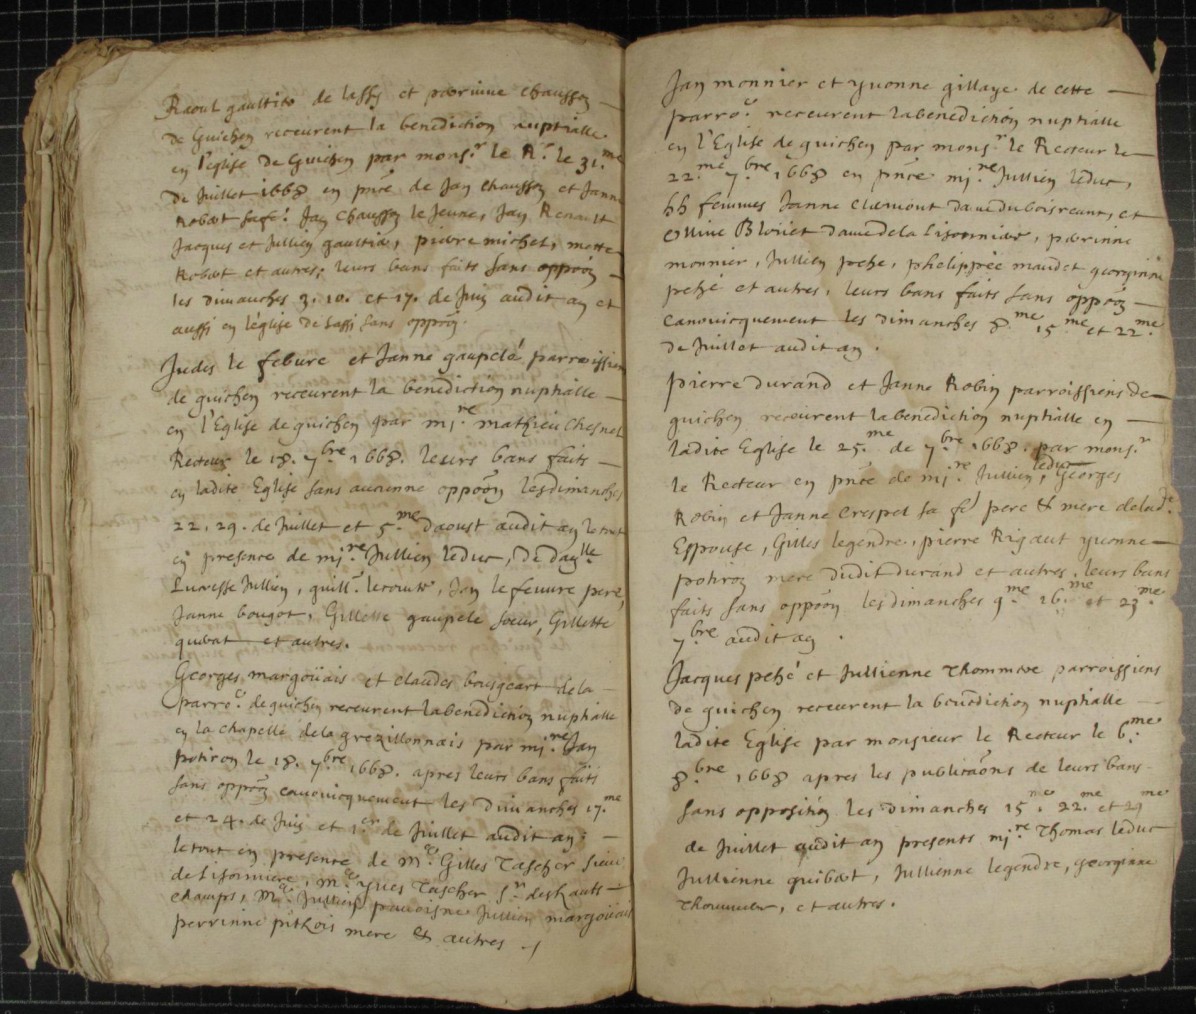 Raoul gaultier de lassy et perrine chausson
de Guichen receurent la benediction nuptialle
en l'eglise de Guichen par mons.r le R.r le 31.me
de Juillet 1668 en pnce de Jan chausson et Janne
Robert sa fe. Jan chausson le Jeune, Jan Renault
Jacques et Jullien gaultier, pierre michel,
Robert et autres, leurs bans faits sans oppoon
les dimanches 3. 10. et 17. de Juin audit an et
aussi en l'eglise de Lassi sans oppoon.
Judes le febure et Janne gaupelé parroissiens
de guichen receurent la benediction nuptialle
en l'Eglise de guichen par mi.re mathieu Chesnel
Recteur le 18. 7bre 1668. leurs bans faits
en ladite Eglise sans aucunne oppoon les dimanches
22. 29. de Juillet et 5.me daoust audit an le tout
en presence de mi.re Jullien leduc, De dalle
Jullien, guill. Jan le feuure pere,
Janne bougot, Gillette gaupele soeur, Gillette
guibert et autres.
Georges margoüais et claudes bourgeart de la
parro. de guichen receurent la benediction nuptialle
en la chapelle de la grezillonnais par mi.re Jan
potiron le 18. 7bre 1668. apres leurs bans faits
sans oppoon canonicquement les dimanches 17.me
et 24. de Juin et 1.er de Juillet audit an.
le tout en presence de m.e Gilles Tascher sieur
de Lisonniere, m.e yves Tascher s.r des hauts
champs, m.re Jullien Jullien margoüais
perrinne mere & autres.
Jan monnier et yvonne gillaye de cette
parro. receurent la benediction nuptialle
en l'Eglise de guichen par mons.r le Recteur le
22.me 7bre 1668 en pnce mi.re Jullien leduc,
hh femmes Janne clermont dame du boisreant, et
ollive Bloüet dame de la Lisonniere, perrinne
monnier, Jullien pehe, phelippée maudet georginne
pehé et autres, leurs bans faits sans oppoon
canonicquement les dimanches 8.me 15.me et 22.me
de Juillet audit an.
pierre durand et Janne Robin parroissiens de
guichen receurent la benediction nuptialle en
ladite Eglise le 25.me de 7bre 1668. par mons.r
le Recteur en pnce de mi.re Jullien leduc, Georges
Robin et Janne Crespel sa fe pere & mere de lad.te
Espouse, Gilles legendre, pierre Rigaut yvonne
potiron mere dudit durand et autres. leurs bans
faits sans oppoon les dimanches 9.me 16.me et 23.me
7bre audit an.
Jacques pehé et Jullienne Thommere parroissiens
de guichen receurent la benediction nuptialle
ladite Eglise par monsieur le Recteur le 6.me
8.bre 1668 apres les publicaons de leurs bans
sans opposition les dimanches 15.me 22.me et 29.me
de Juillet audit an presents mi.re Thomas leduc
Jullienne guibert, Jullienne legendre, georginne
Thommere, et autres.